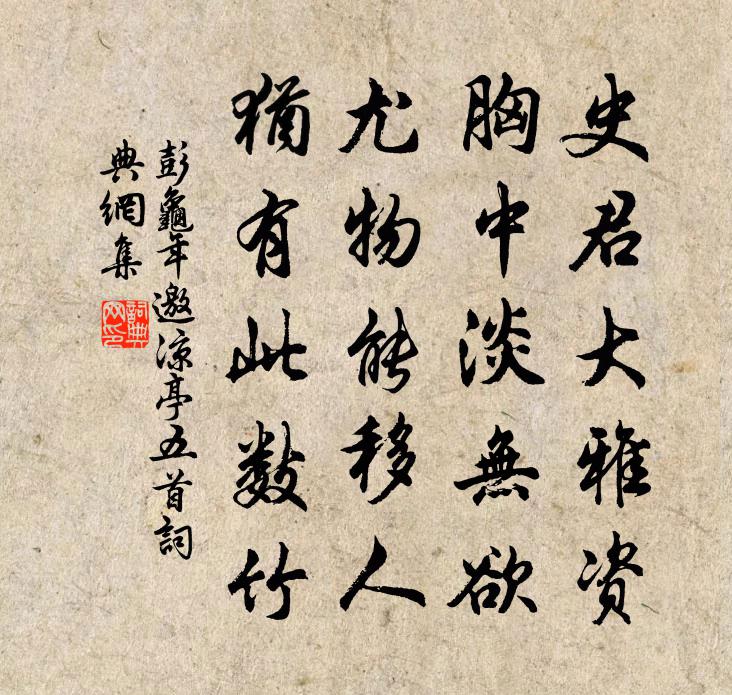 史君大雅资
胸中淡無欲
尤物能移人
猶有此数竹
彭龜年邀凉亭五首詞
典網集
詞典
网印